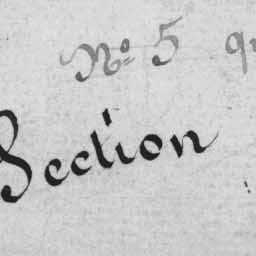 Nº 5
Section